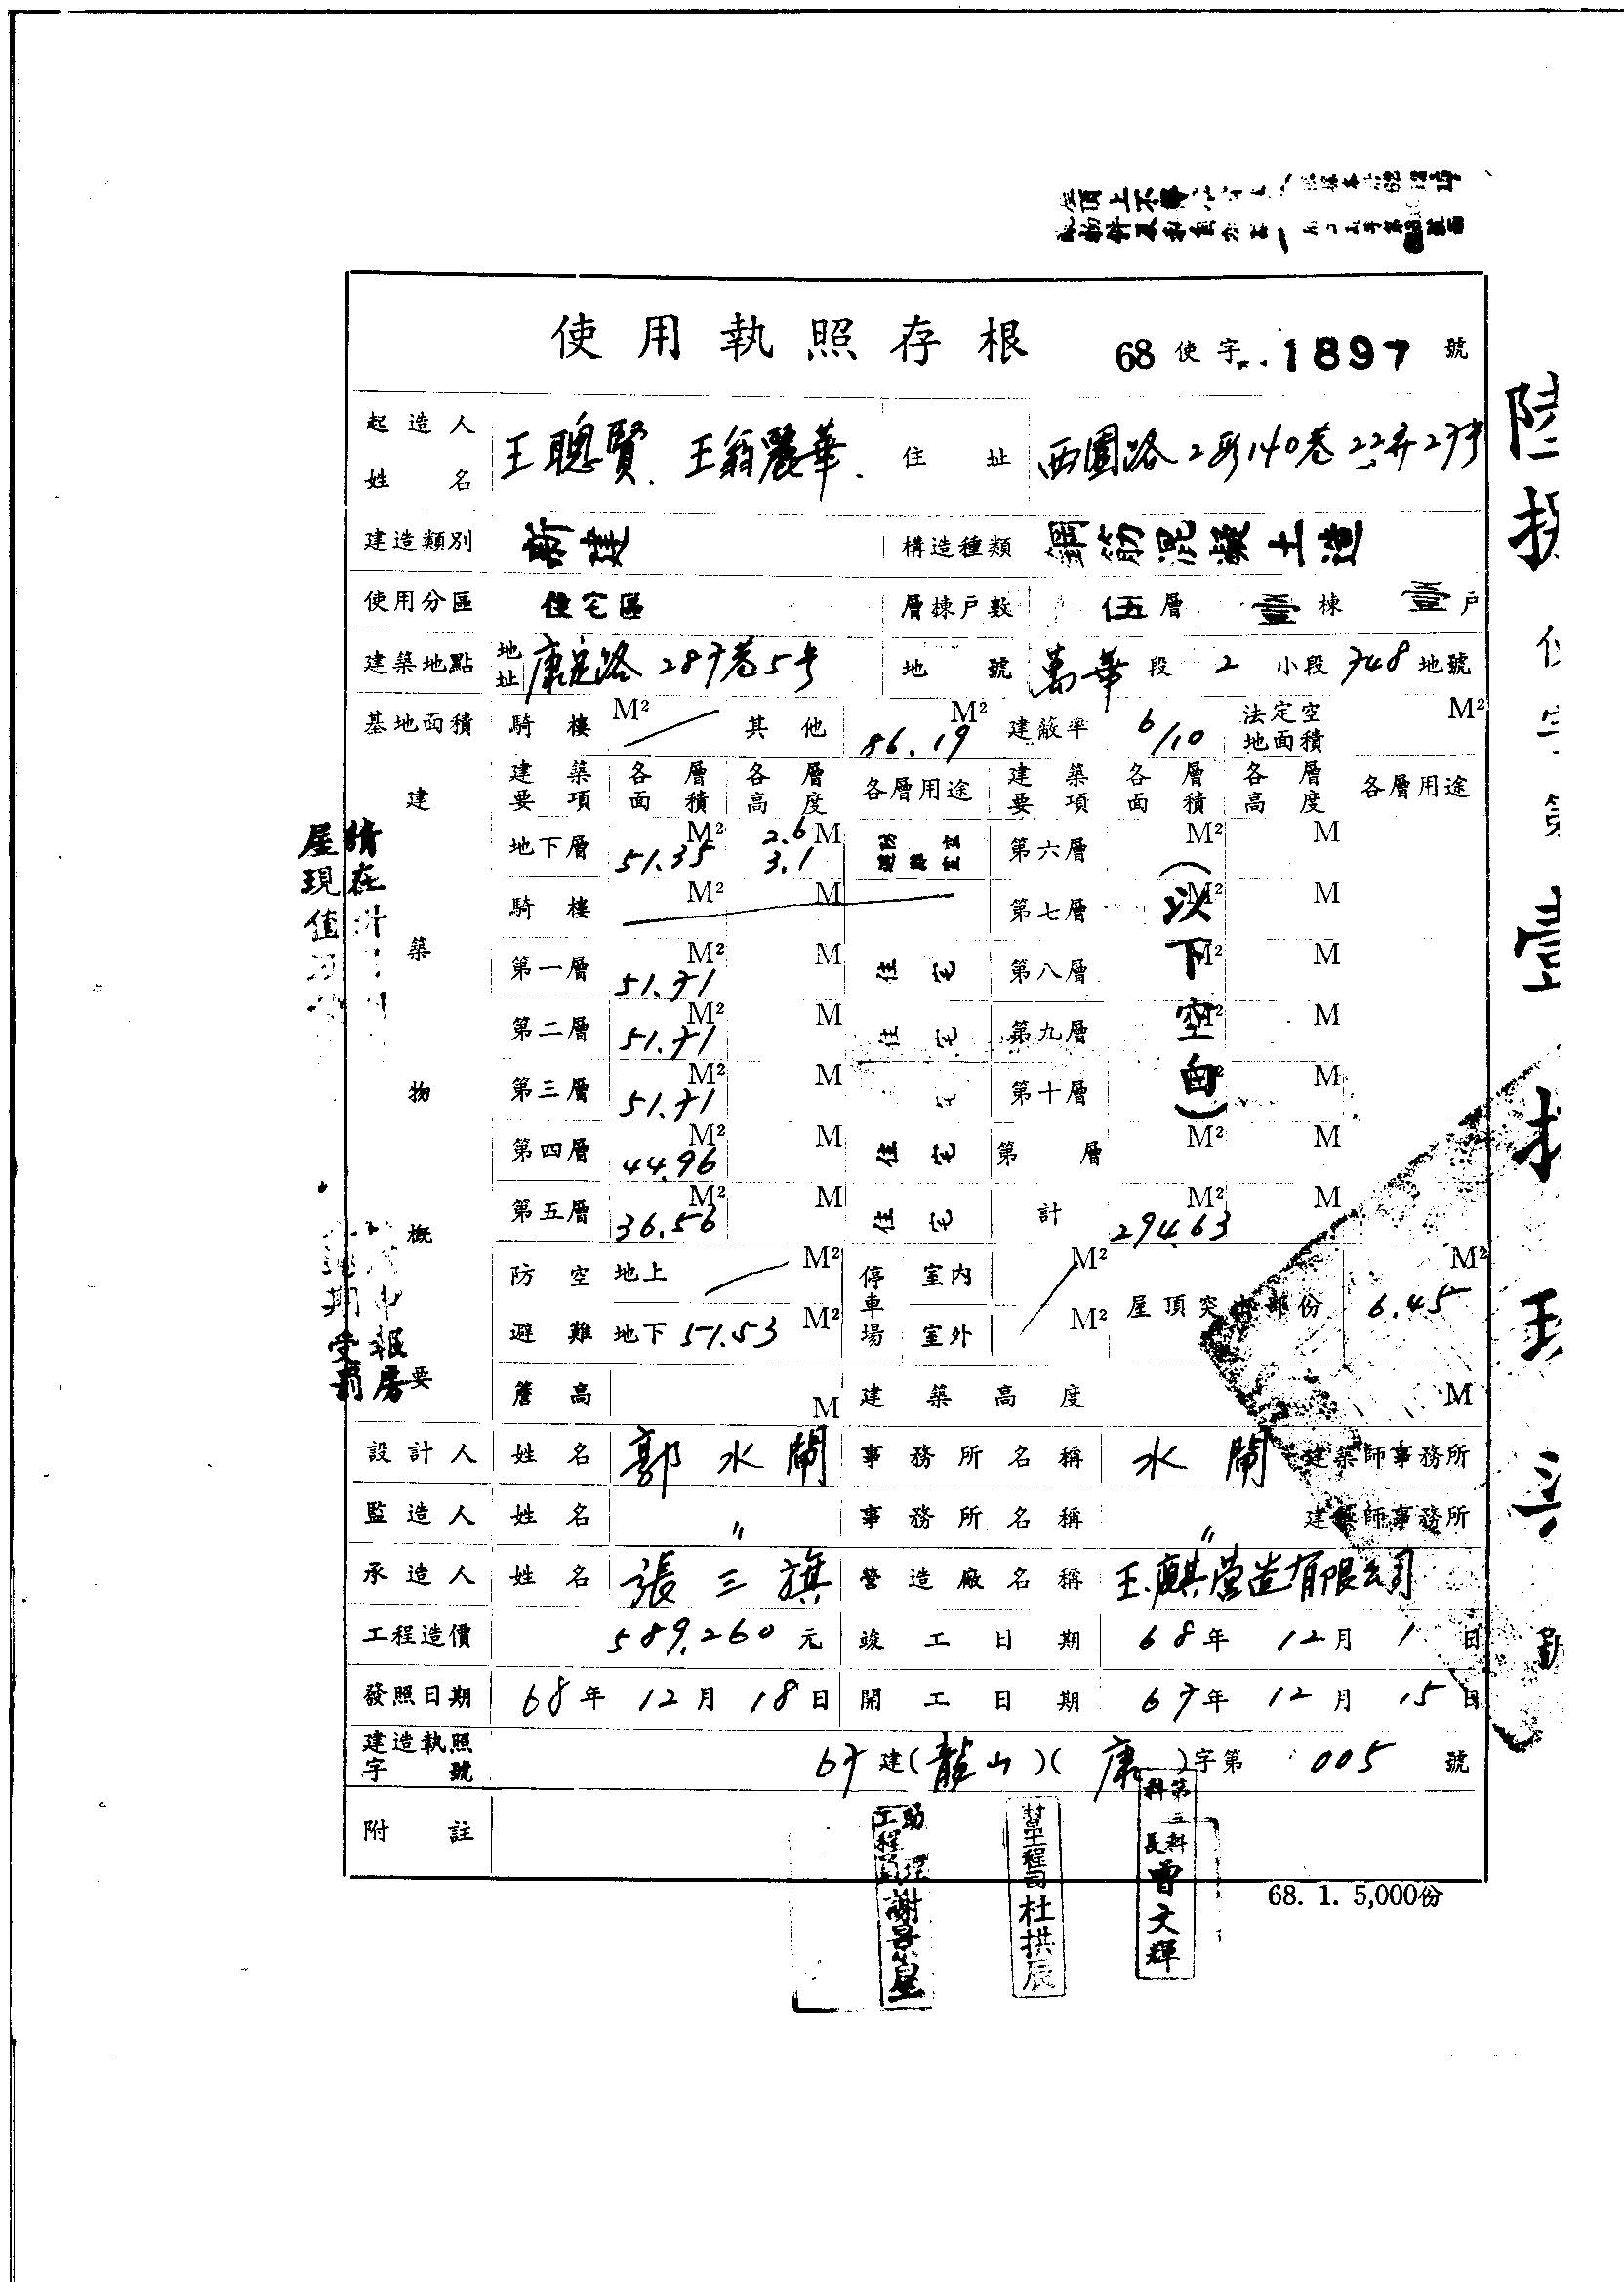 使用執照存根 68使字 1897 號
起造人姓名 王聰賢、王翁麗華 住址 西園路2段140巷22弄27号
建造類別 新建 構造種類 鋼筋混凝土造
使用分區 住宅區 層棟戶數 伍層 壹棟 壹戶
建築地點 地址 康定路287巷5号 地號 萬華段 2 小段 748 地號
基地面積 騎樓 M² 其他 86.19 M² 建蔽率 6/10 法定空地面積 M²
建築物概要
建築要項 各層面積 各層高度 各層用途 建築要項 各層面積 各層高度 各層用途
地下層 51.35 M² 2.6 3.1 M 第六層 M² M
騎樓 M² M 第七層 M² M
第一層 51.71 M² M 住宅 第八層 M² M
第二層 51.71 M² M 住宅 第九層 M² M
第三層 51.71 M² M 宅 第十層 M² M
第四層 44.96 M² M 住宅 第 層 M² M
第五層 36.56 M² M 住宅 計 294.63 M² M
(以下空白)
防空避難 地上 M² 停車場 室內 M² 屋頂突出部份 6.45 M²
地下 51.53 M² 室外 M²
簷高 M 建築高度 M
設計人 姓名 郭水閙 事務所名稱 水閙 建築師事務所
監造人 姓名 〃 事務所名稱 〃 建築師事務所
承造人 姓名 張三旗 營造廠名稱 王麒营造有限公司
工程造價 589,260元 竣工日期 68年12月1日
發照日期 68年12月18日 開工日期 67年12月15日
建造執照字號 67建(龍山)(康)字第 005 號
附註
助理工程司 謝景星
幫工程司 杜拱辰
第三科科長 曾文輝
68. 1. 5,000份